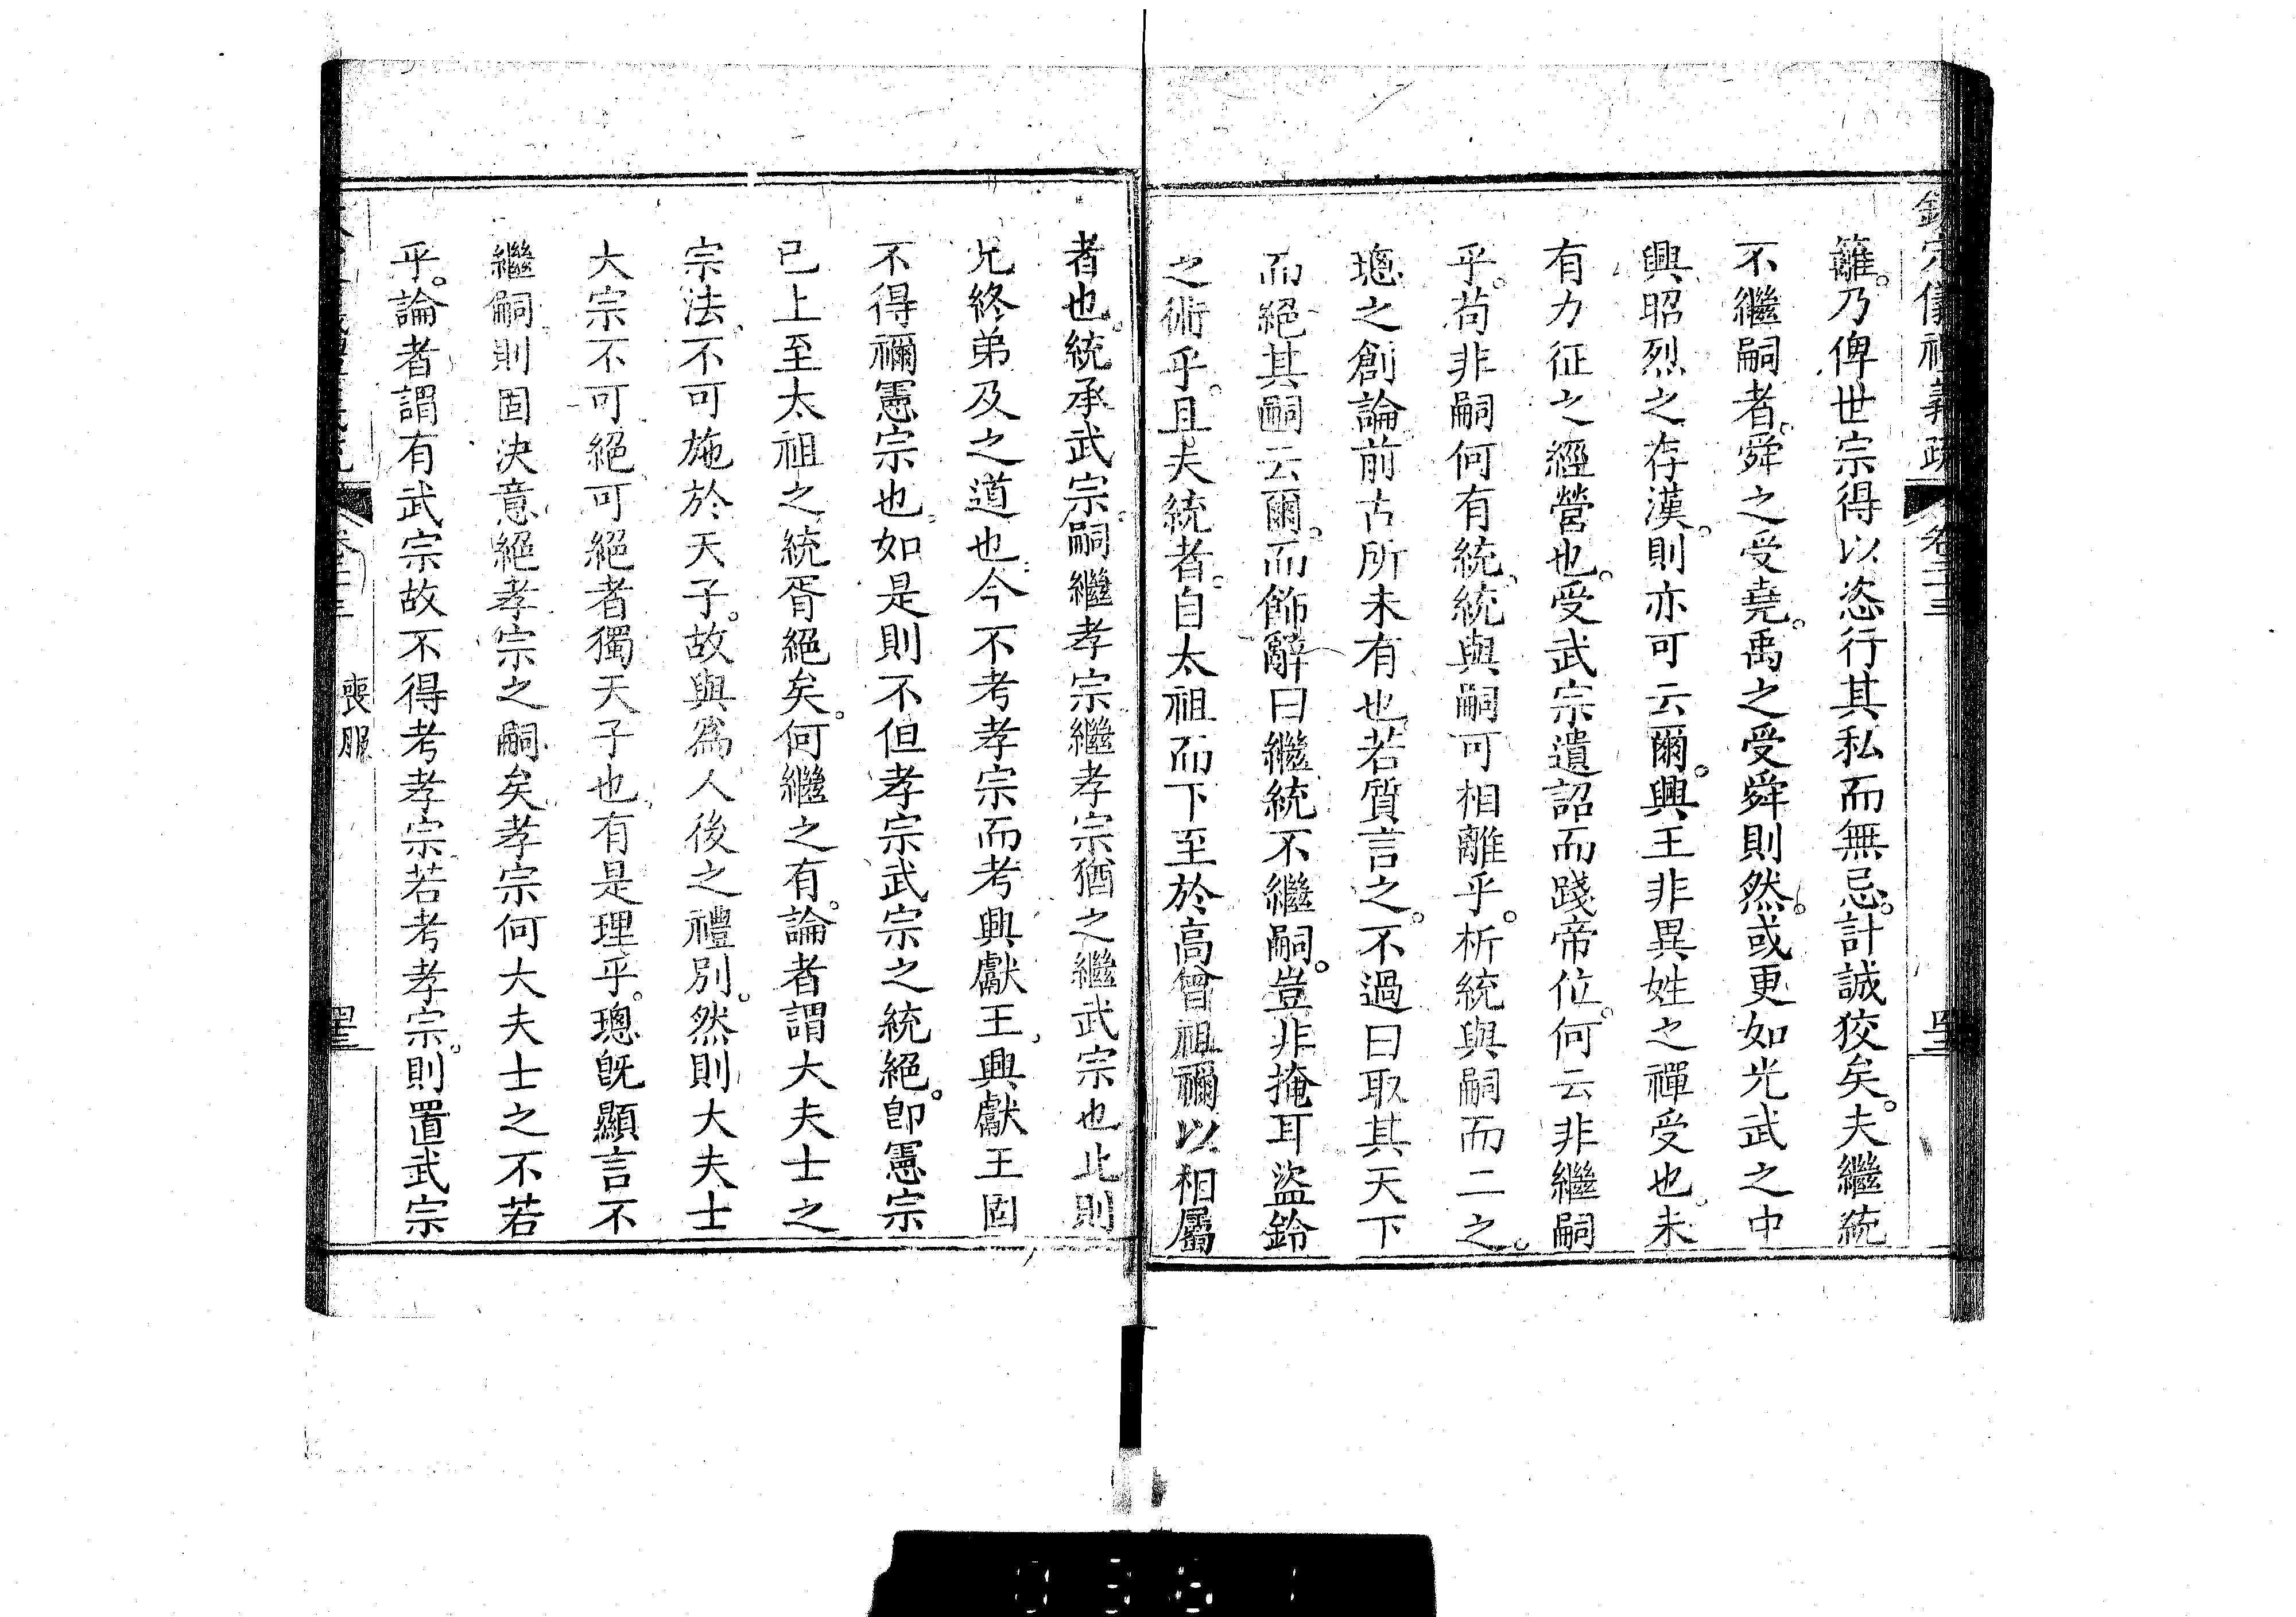 欽定儀禮義疏 卷二十三
籬。乃俾世宗得以恣行其私而無忌。計誠狡矣。夫繼統
不繼嗣者。舜之受堯。禹之受舜則然。或更如光武之中
興昭烈之存漢。則亦可云爾。興王非異姓之禪受也。未
有力征之經營也。受武宗遺詔而踐帝位。何云非繼嗣
乎。苟非嗣何有統。統與嗣可相離乎。析統與嗣而二之。
璁之創論前古所未有也。若質言之。不過曰取其天下
而絕其嗣云爾。而飾辭曰繼統不繼嗣。豈非掩耳盜鈴
之術乎。且夫統者。自太祖而下至於高曾祖禰以相屬
者也。統承武宗。嗣繼孝宗。繼孝宗猶之繼武宗也。此則
兄終弟及之道也。今不考孝宗而考興獻王。興獻王固
不得禰憲宗也。如是則不但孝宗武宗之統絕。卽憲宗
已上至太祖之統胥絕矣。何繼之有。論者謂大夫士之
宗法。不可施於天子。故與爲人後之禮別。然則大夫士
大宗不可絕。可絕者獨天子也。有是理乎。璁旣顯言不
繼嗣。則固決意絕孝宗之嗣矣。孝宗何大夫士之不若
乎。論者謂有武宗故不得考孝宗。若考孝宗。則置武宗
喪服